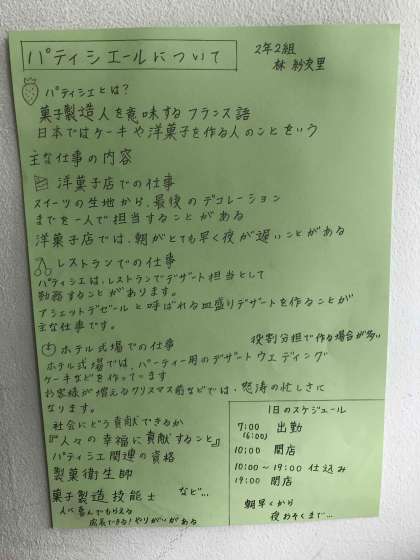 パティシエールについて
2年2組
林 紗友里
パティシエとは?
菓子製造人を意味するフランス語
日本ではケーキや洋菓子を作る人のことをいう
主な仕事の内容
洋菓子店での仕事
スイーツの生地から、最後のデコレーション
までを一人で担当することがある
洋菓子店では、朝がとても早く夜が遅いことがある
レストランでの仕事
パティシエは、レストランでデザート担当として
勤務することがあります。
アシェットデセールと呼ばれる皿盛りデザートを作ることが
主な仕事です。
役割分担で作る場合が多い
ホテル式場での仕事
ホテル式場では、パーティー用のデザートウエディング
ケーキなどを作っています
お客様が増えるクリスマス前などでは、怒涛の忙しさに
なります。
社会にどう貢献できるか
『人々の幸福に貢献すること』
パティシエ関連の資格
製菓衛生師
菓子製造技能士 など…
人に喜んでもらえる
成長できる!やりがいがある
1日のスケジュール
7:00 出勤
(6:00)
10:00 開店
10:00~19:00 仕込み
19:00 閉店
朝早くから
夜おそくまで…